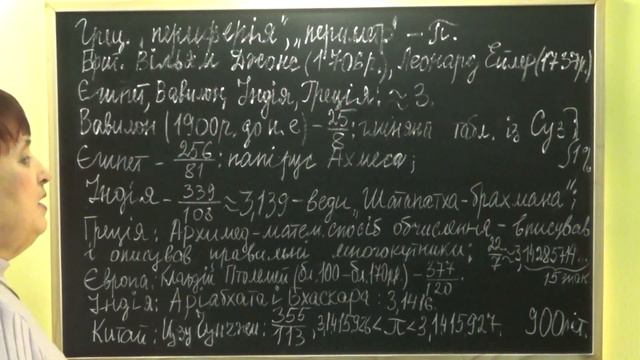 Грец. „периферія", „периметр" – П.
Брит. Вільям Джонс (1706р.), Леонард Ейлер (1737р.)
Єгипет, Вавилон, Індія, Греція: ≈ 3.
Вавилон (1900р. до н. е) – 25/8: глиняні табл. із Суз } 1%
Єгипет – 256/81: папірус Ахмеса;
Індія – 339/108 ≈ 3,139 – веди „Шатапатха-брахмана";
Греція: Архимед – матем. спосіб обчислення – вписував
і описував правильні многокутники; 22/7 ≈ 3,14285714... 15 знак
Європа: Клавдій Птолемей (бл. 100 – бл. 170рр) – 377/120.
Індія: Аріабхата і Бхаскара: 3,1416.
Китай: Цзу Чунчжи: 355/113, 3,1415926 < π < 3,1415927. 900 літ.